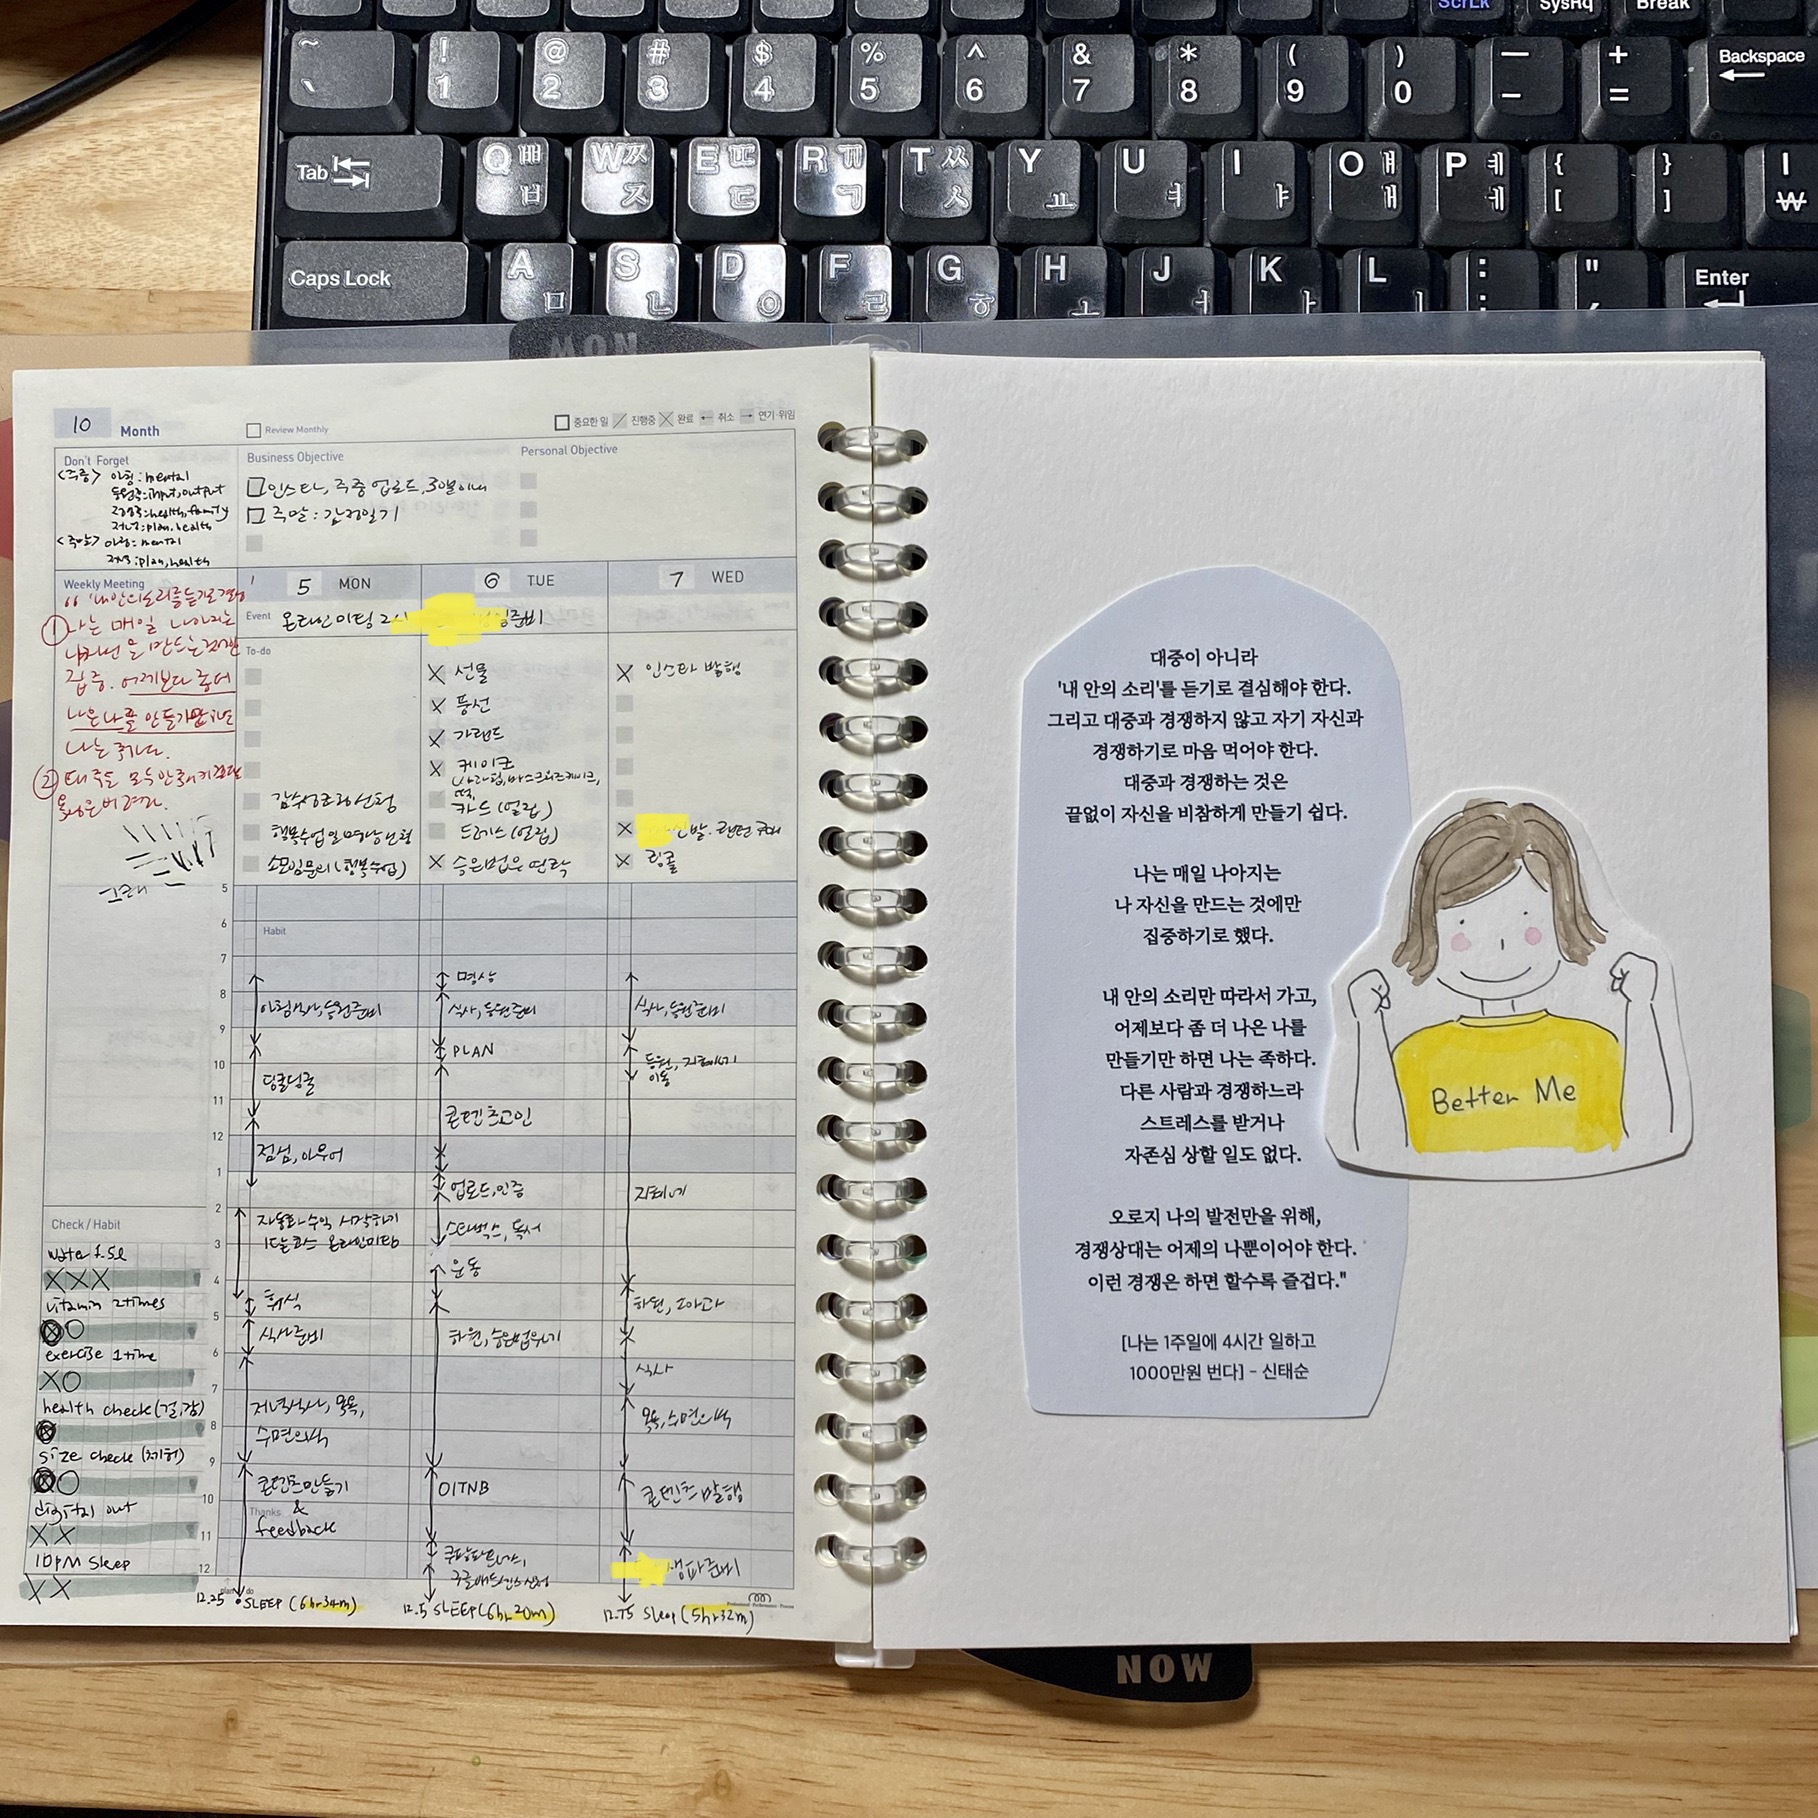 ScrLk SysRq Break
~ ! @ # $ % ^ & * ( ) — + Backspace
` 1 2 3 4 5 6 7 8 9 0 - =
Tab Q ㅃ ㅂ W ㅉ ㅈ E ㄸ ㄷ R ㄲ ㄱ T ㅆ ㅅ Y ㅛ U ㅕ I ㅑ O ㅒ ㅐ P ㅖ ㅔ { [ } ] | ₩
Caps Lock A ㅁ S ㄴ D ㅇ F ㄹ G ㅎ H ㅗ J ㅓ K ㅏ L ㅣ : ; " Enter
NOW
10 Month
Review Monthly
중요한 일 진행중 완료 취소 연기·위임
Don't Forget
<주중> 아침: mental
등원후: input, output
하원후: health, family
저녁: plan, health
<주말> 아침: mental
저녁: plan, health
Business Objective
인스타, 주중 업로드, 3일이내
주말: 감정일기
Personal Objective
Weekly Meeting
"'내 안의 소리'를 듣기로 결심
① 나는 매일 나아지는
나자신을 만드는 것에만
집중. 어제보다 좀 더
나은 나를 만들기만 하면
나는 족하다.
②
5 MON
6 TUE
7 WED
Event 온라인미팅 2시
준비
To-do
감수성코칭신청
행복수업일
소모임문의(행복수업)
선물
풍선
가랜드
케이크
떡,
카드(얼집)
드레스(얼집)
승은법은 연락
인스타 발행
링콜
5
6
7
8
9
10
11
12
1
2
3
4
5
6
7
8
9
10
11
12
Habit
아침식사, 등원준비
딩굴딩굴
점심, 아우어
자동화 수익 시작하기
1달코스 온라인미팅
휴식
식사준비
저녁식사, 목욕,
수면의식
콘텐츠만들기
&
Thanks
feedback
명상
식사, 등원준비
PLAN
콘텐츠고민
업로드, 인증
스타벅스, 독서
운동
하원,
OITNB
쿠팡파트너스,
식사, 등원준비
등원,
이동
하원, 소아과
식사
목욕, 수면의식
콘텐츠 발행
생파준비
Check / Habit
water 1.5l
XXX
vitamin 2times
exercise 1time
XO
health check(걷,감)
size check(체허)
digital out
XX
10PM sleep
XX
plan do
12.25 SLEEP (6hr 34m)
12.5 SLEEP (6hr 20m)
12.75 sleep (5hr 32m)
대중이 아니라
'내 안의 소리'를 듣기로 결심해야 한다.
그리고 대중과 경쟁하지 않고 자기 자신과
경쟁하기로 마음 먹어야 한다.
대중과 경쟁하는 것은
끝없이 자신을 비참하게 만들기 쉽다.
나는 매일 나아지는
나 자신을 만드는 것에만
집중하기로 했다.
내 안의 소리만 따라서 가고,
어제보다 좀 더 나은 나를
만들기만 하면 나는 족하다.
다른 사람과 경쟁하느라
스트레스를 받거나
자존심 상할 일도 없다.
오로지 나의 발전만을 위해,
경쟁상대는 어제의 나뿐이어야 한다.
이런 경쟁은 하면 할수록 즐겁다."
[나는 1주일에 4시간 일하고
1000만원 번다] - 신태순
Better Me
NOW